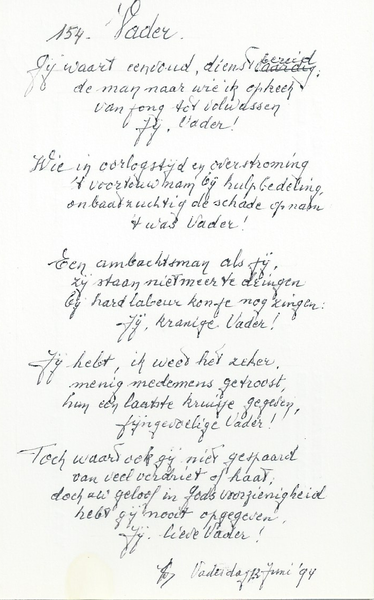 154. Vader.
Jij waart eenvoud, dienstbereid,
de man naar wie ik opkeek
van jong tot volwassen
Jij, Vader!
Wie in oorlogstijd en overstroming
't voortouw nam bij hulpbedeling,
onbaatzuchtig de schade opnam
't was Vader!
Een ambachtsman als jij,
zij staan niet meer te dringen
bij hard labeur kon je nog zingen:
Jij, kranige Vader!
Jij hebt, ik weet het zeker,
menig medemens getroost,
hun een laatste kruisje gegeven,
fijngevoelige Vader!
Toch waart ook gij niet gespaard
van veel verdriet of haat,
doch uw geloof in Gods voorzienigheid
hebt gij nooit opgegeven,
Jij, lieve Vader!
Vaderdag Juni '94